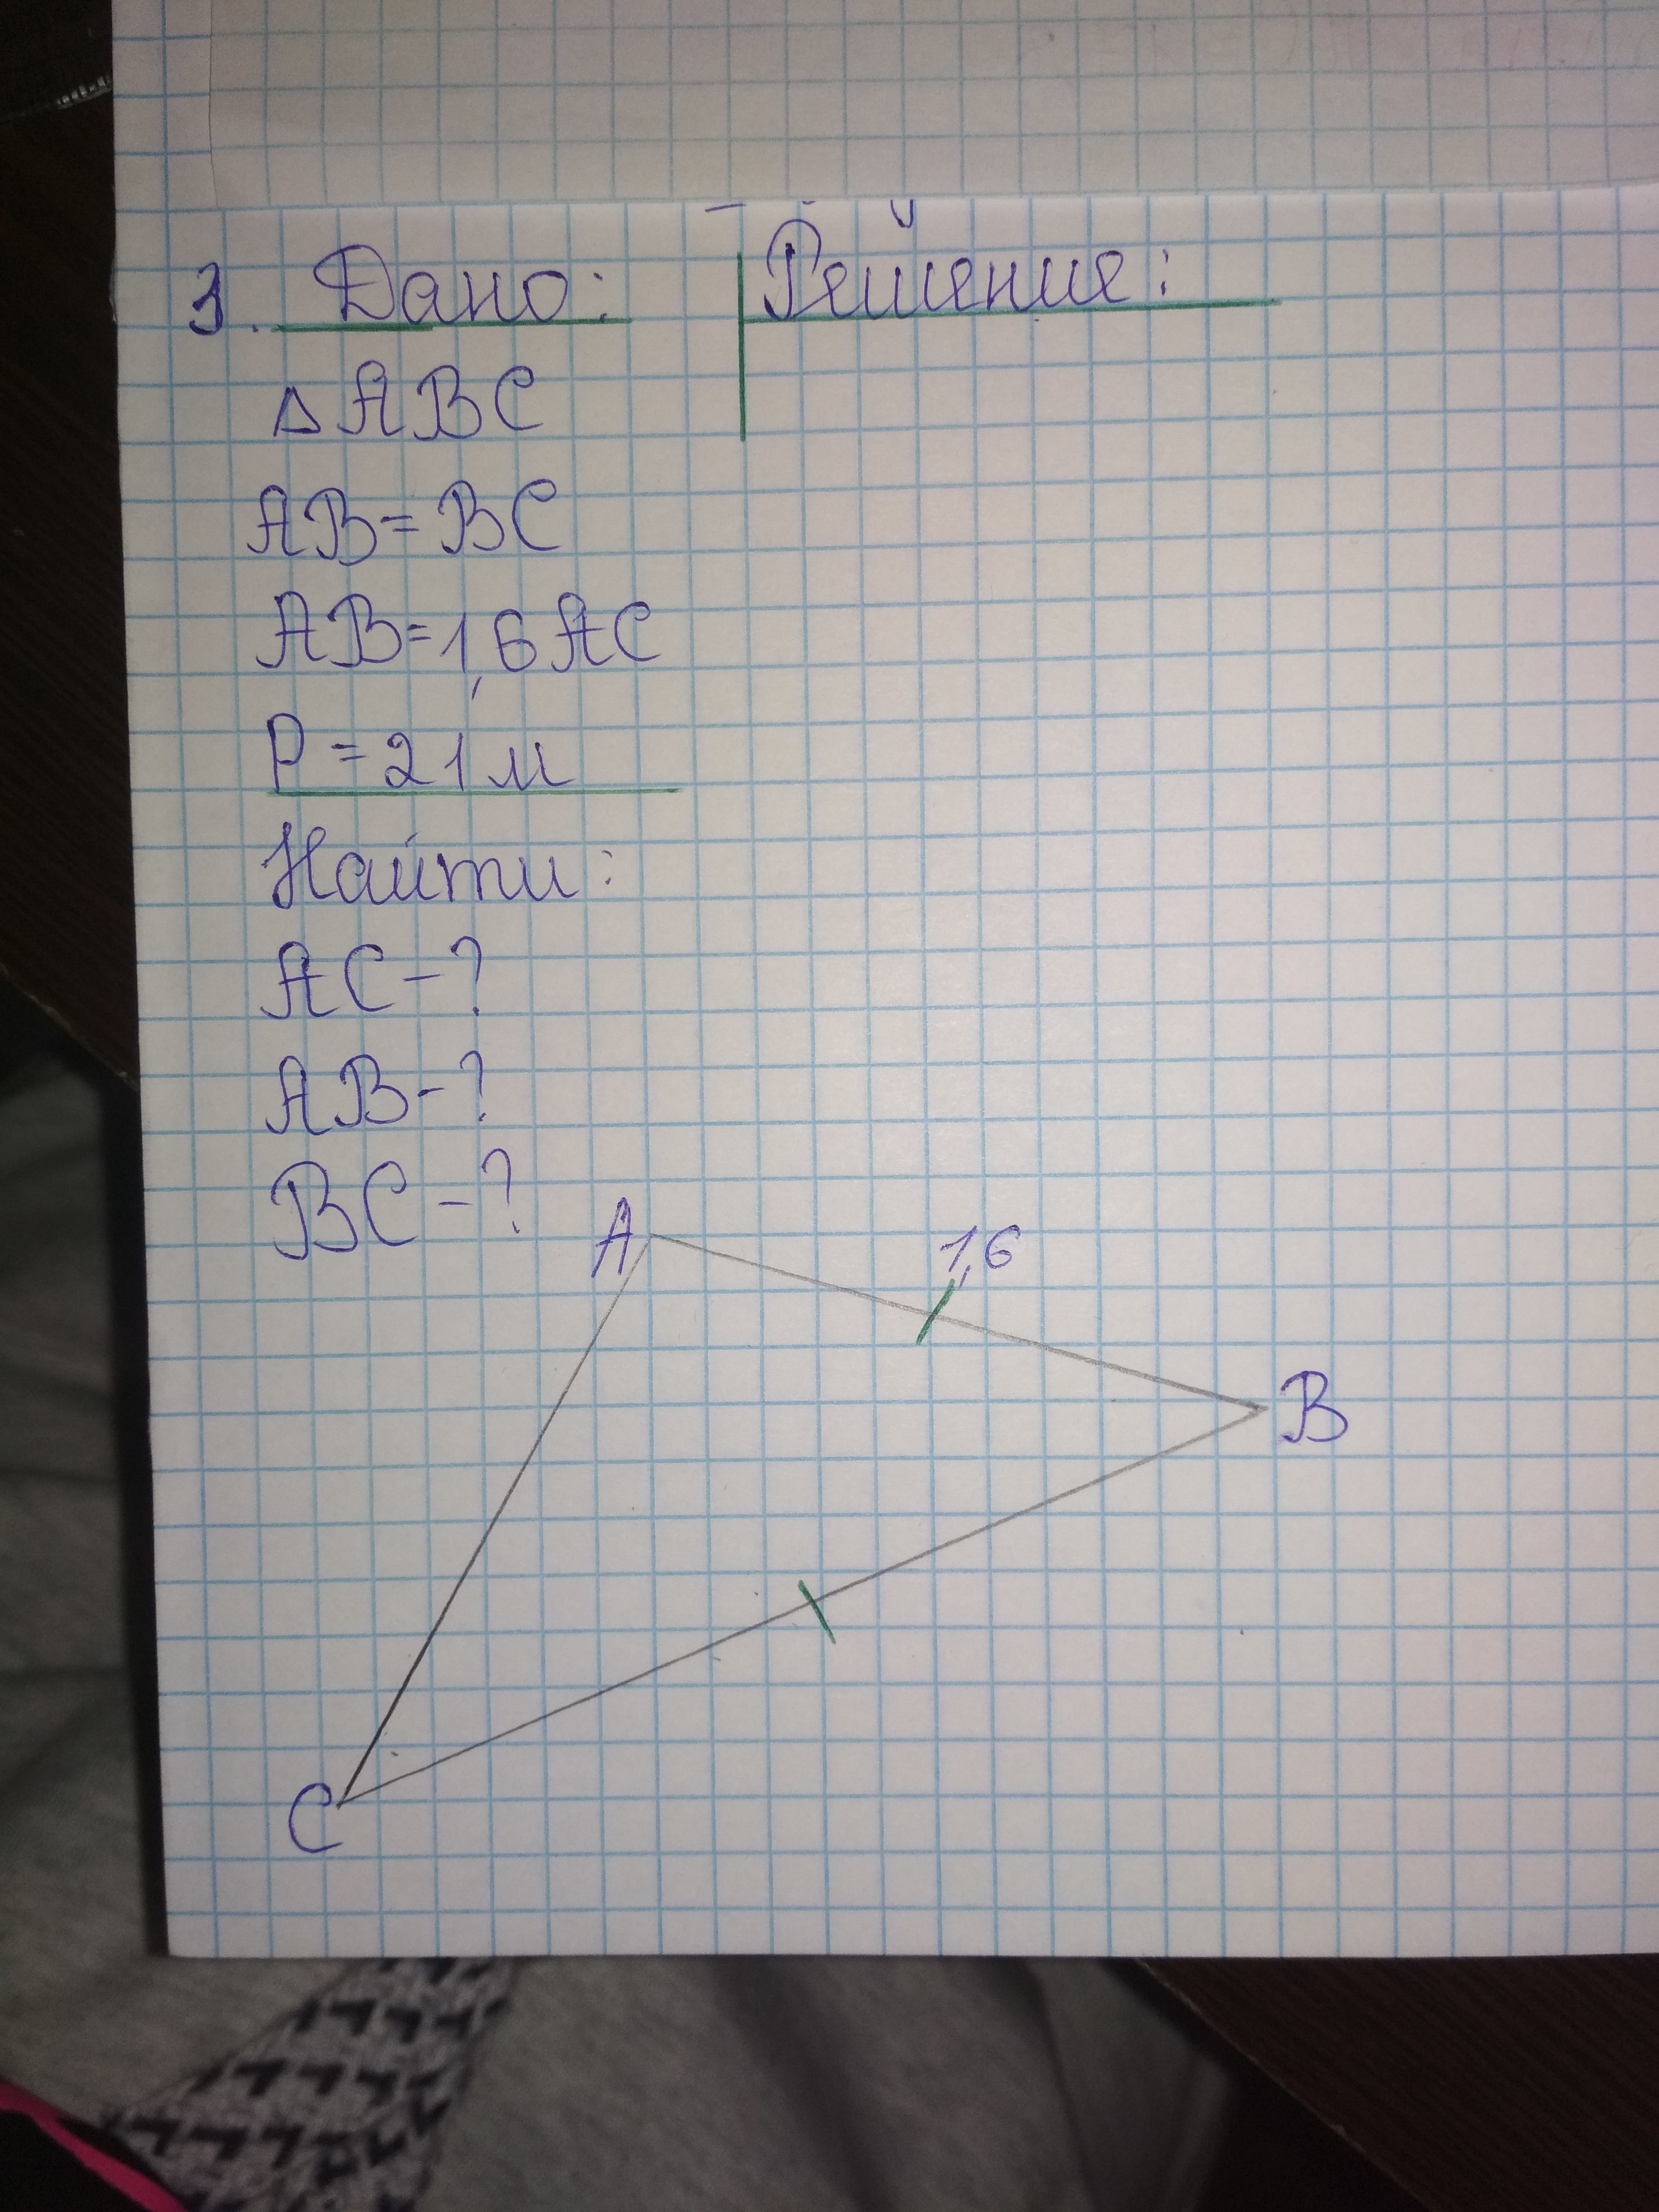 3. Дано: Решение:
△ABC
AB=BC
AB=1,6AC
P=21м
Найти:
AC-?
AB-?
BC-?
A
1,6
B
C